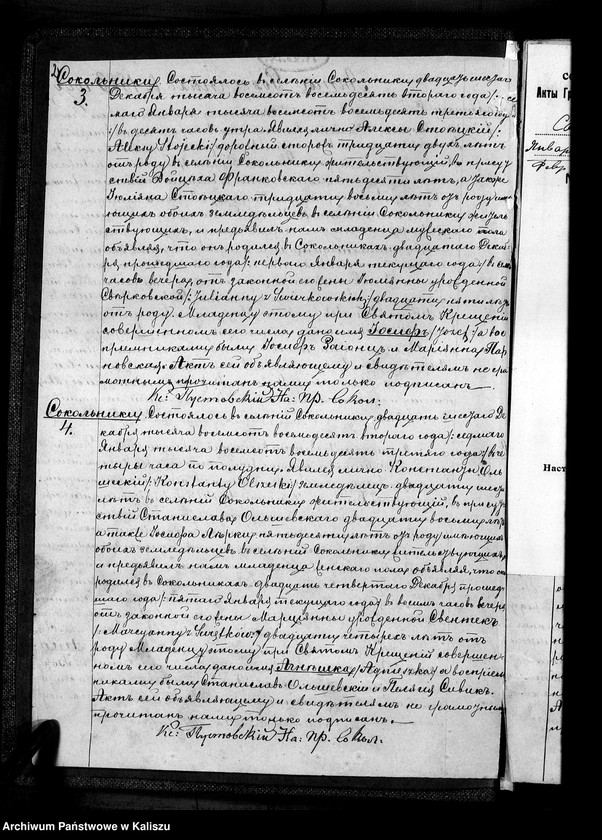 2
Сокольники. Состоялось въ селѣніи Сокольники двадцать шестаго
3.
Декабря тысяча восемсотъ восемьдесятъ втораго года /: се
маго Января тысяча восемсотъ восемьдесятъ третяго года
:/ въ десять часовъ утра. Явился лично Алексы Стоецкій /:
Alexy Stojecki :/ дворовый сторожъ тридцати двухъ лѣтъ
отъ роду въ селѣніи Сокольники жительствующій, въ присут
ствіи Войцѣха Франковскаго пятьдесяти лѣтъ, а также
Юліяна Стоецкаго тридцати восьми лѣтъ отъ роду имѣ
ющихъ обоихъ земледѣльцевъ въ селѣніи Сокольники житель
ствующихъ, и предъявилъ намъ младенца мужескаго пола
объявляя, что онъ родился въ Сокольникахъ двадцатаго Декаб
ря прошедшаго года /: перваго Января текущаго года :/ въ семь
часовъ вечера, отъ законной его жены Юліянны урожденной
Сверковской /: Julianny z Swierkowskich :/ двадцати пяти лѣтъ
отъ роду. Младенцу этому при Святомъ Крещеніи
совершенномъ его числа дано имя Іосифъ /Józef/ а вос
премниками были Іосифъ Заіонцъ и Маріянна Пар
новская. Актъ сей объявляющему и свидѣтелямъ не гра
мотнымъ прочитанъ нами только подписанъ.
Кс: Пустовскій На: Пр. Сокол:
Сокольники. Состоялось въ селѣніи Сокольники двадцать шестаго Де
4.
кабря тысяча восемсотъ восемьдесятъ втораго года /: седмаго
Января тысяча восемсотъ восемьдесятъ третяго года :/ въ че
тыры часа по полудни. Явился лично Константы Оль
шескій /: Konstanty Olszeski :/ земледѣлецъ двадцати шести
лѣтъ въ селѣніи Сокольники жительствующій, въ присут
ствіи Станислава Ольшевскаго двадцати восьми лѣтъ
а также Іосифа пятьдесяти лѣтъ отъ роду имѣющихъ
обоихъ земледѣльцевъ въ селѣніи Сокольники жительствующихъ,
и предъявилъ намъ младенца женскаго пола, объявляя, что она
родилась въ Сокольникахъ двадцать четвертаго Декабря прошед
шаго года /: пятаго Января текущаго года :/ въ восемь часовъ вечера
отъ законной его жены Марціянны урожденной Свентекъ
/: Marcyanny z :/ двадцати четырехъ лѣтъ отъ
роду Младенцу этому при Святомъ Крещеніи совершен
номъ его числа, дано имя Агнѣшка /Agnieszka/ а воспрем
никами были Станиславъ Ольшевскій и Пелагія Сивикъ.
Актъ сей объявляющему и свидѣтелямъ не грамотнымъ
прочитанъ нами только подписанъ.
Кс: Пустовскій На: Пр. Сокол.
Акты Гр
Январ
Февр
Наст
Archiwum Państwowe w Kaliszu